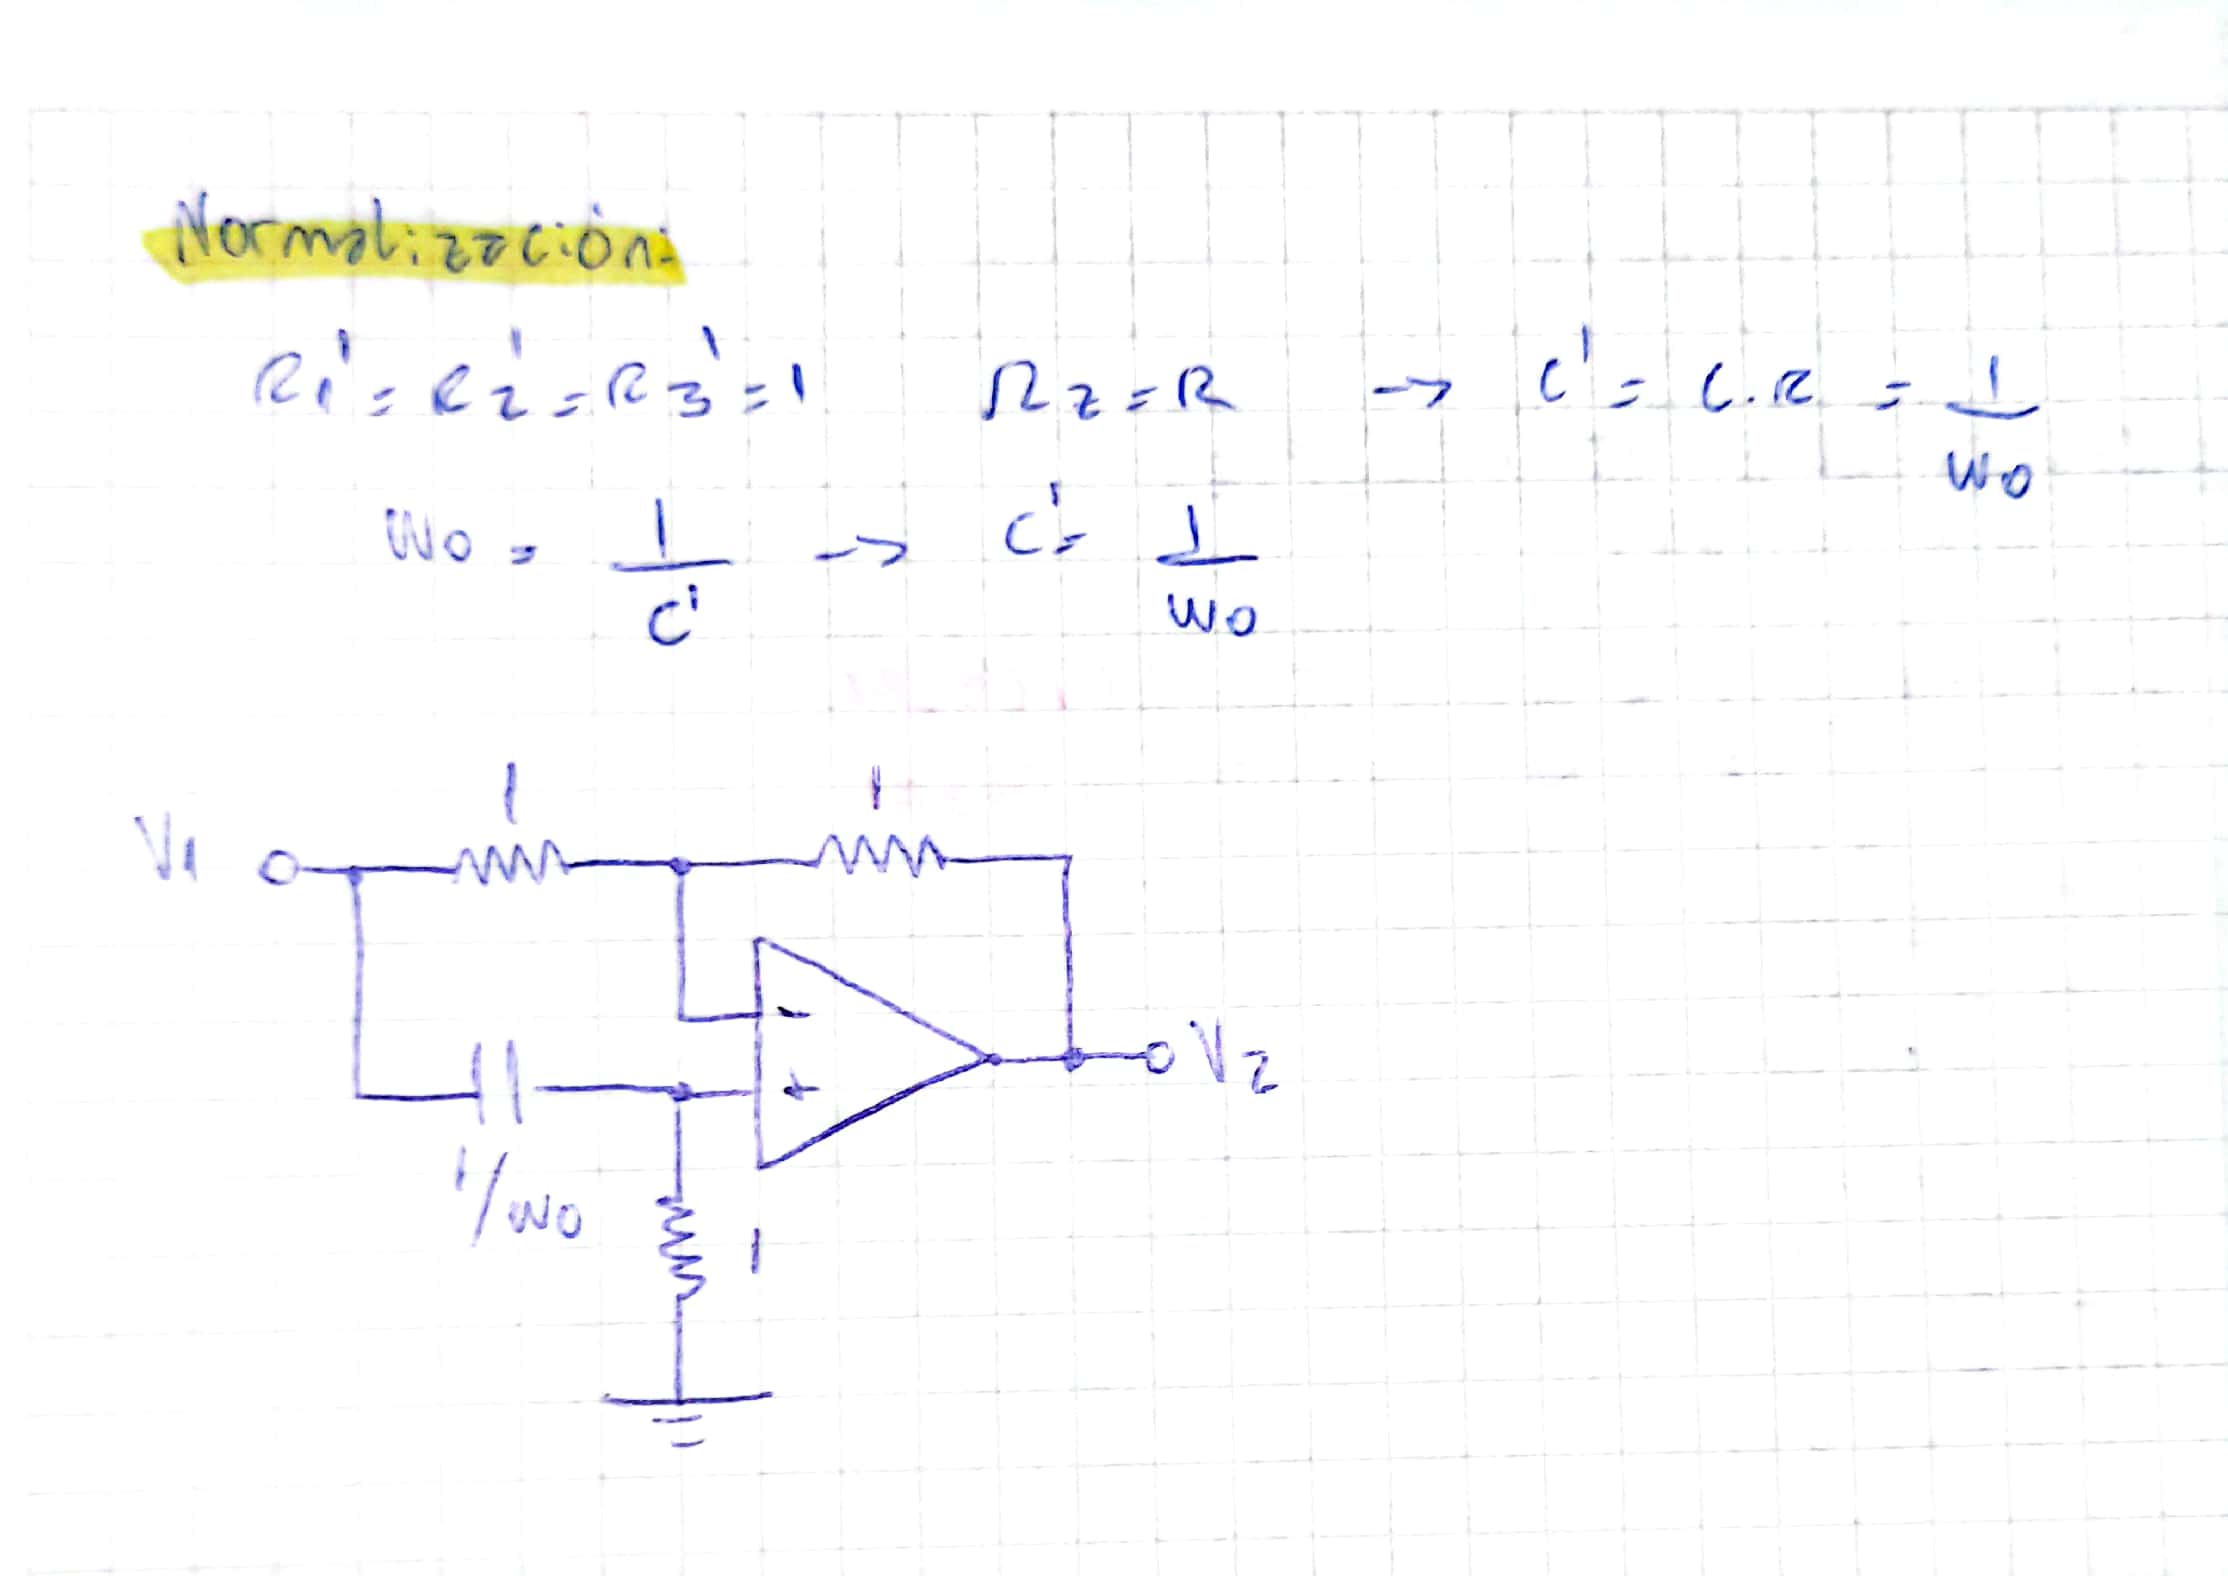 Normalización:
R1' = R2' = R3' = 1 Ωz = R -> C' = C.R = 1/w0
w0 = 1/C' -> C' = 1/w0
1 1
V1
-
+
V2
1/w0
1